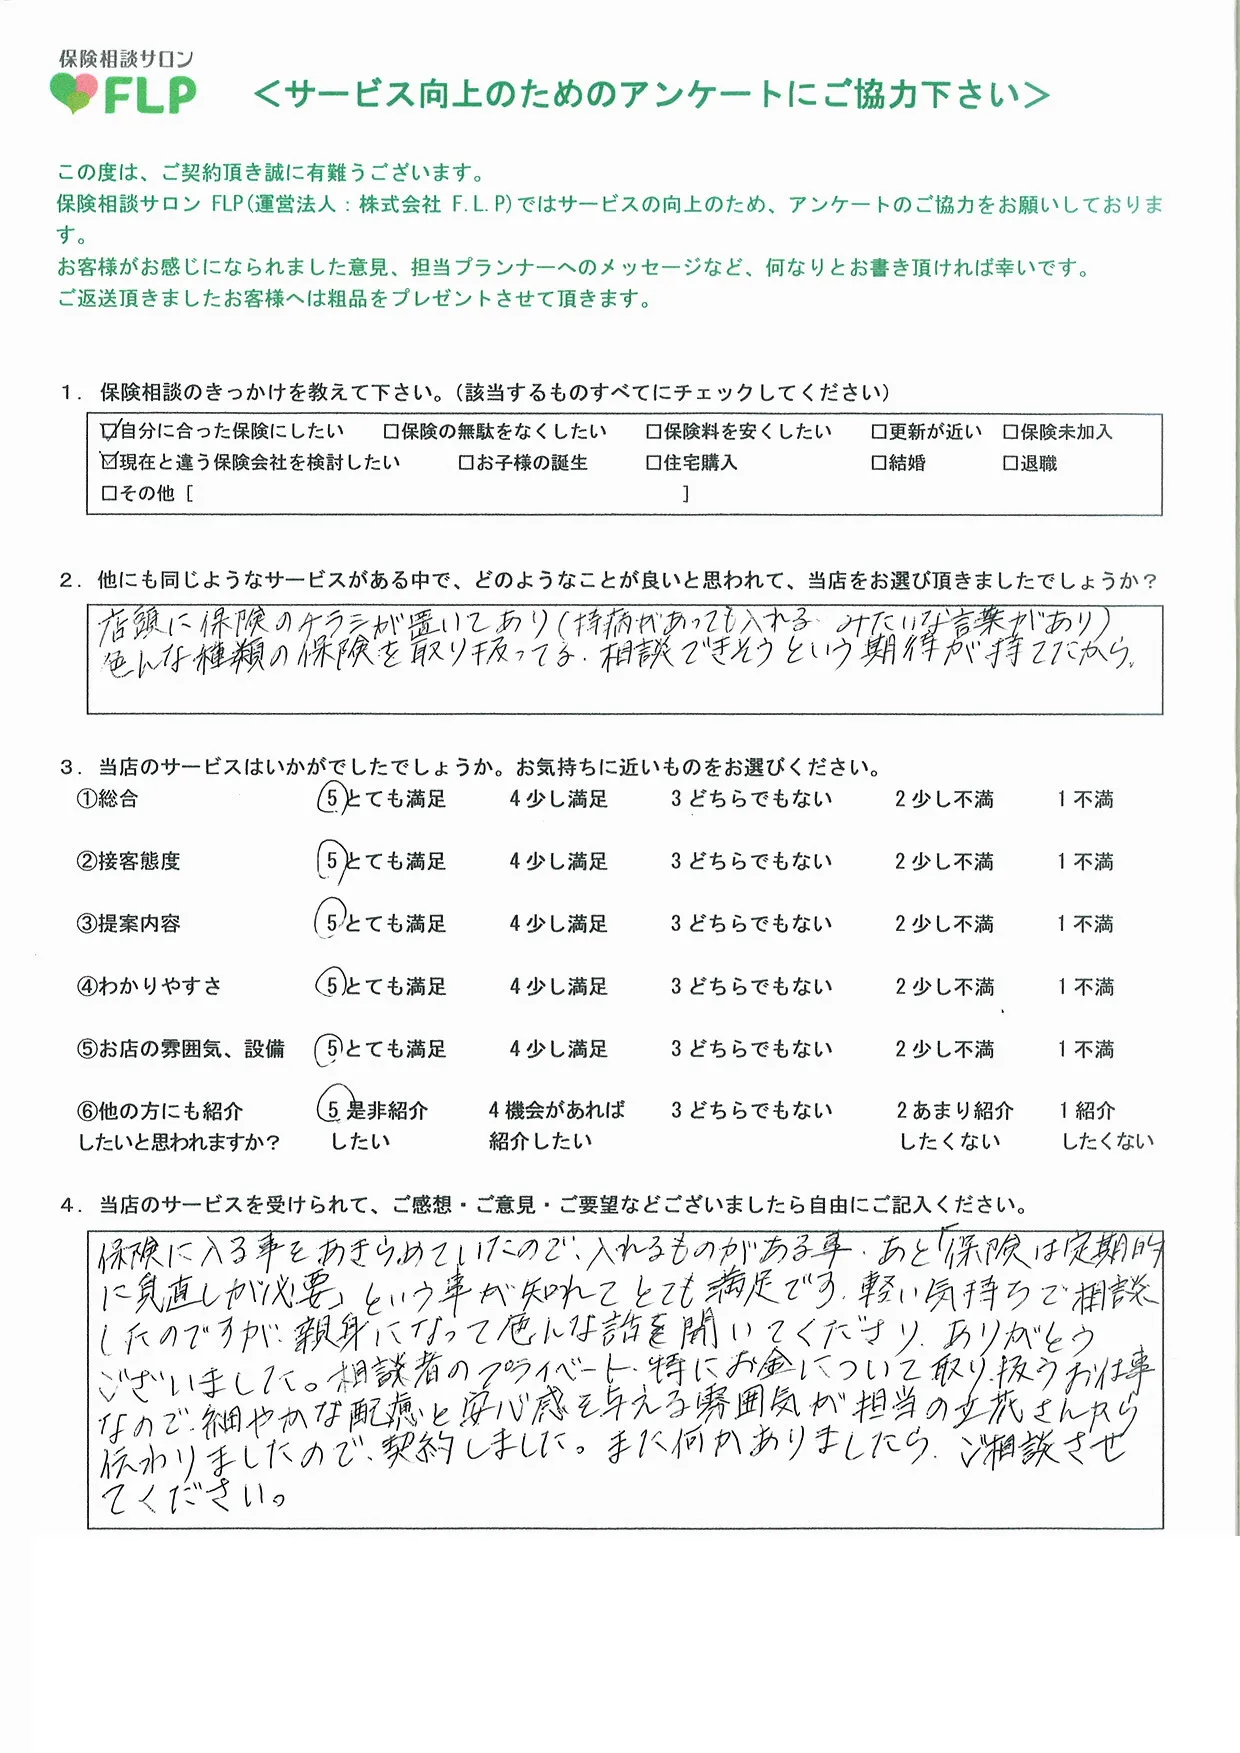 保険相談サロン
FLP
＜サービス向上のためのアンケートにご協力下さい＞
この度は、ご契約頂き誠に有難うございます。
保険相談サロン FLP(運営法人：株式会社 F.L.P)ではサービスの向上のため、アンケートのご協力をお願いしておりま
す。
お客様がお感じになられました意見、担当プランナーへのメッセージなど、何なりとお書き頂ければ幸いです。
ご返送頂きましたお客様へは粗品をプレゼントさせて頂きます。
１．保険相談のきっかけを教えて下さい。（該当するものすべてにチェックしてください）
☑自分に合った保険にしたい □保険の無駄をなくしたい □保険料を安くしたい □更新が近い □保険未加入
☑現在と違う保険会社を検討したい □お子様の誕生 □住宅購入 □結婚 □退職
□その他［ ］
２．他にも同じようなサービスがある中で、どのようなことが良いと思われて、当店をお選び頂きましたでしょうか？
店頭に保険のチラシが置いてあり(持病があっても入れる、みたいな言葉があり)
色んな種類の保険を取り扱ってる、相談できそうという期待が持てたから。
３．当店のサービスはいかがでしたでしょうか。お気持ちに近いものをお選びください。
①総合 5とても満足 4少し満足 3どちらでもない 2少し不満 1不満
②接客態度 5とても満足 4少し満足 3どちらでもない 2少し不満 1不満
③提案内容 5とても満足 4少し満足 3どちらでもない 2少し不満 1不満
④わかりやすさ 5とても満足 4少し満足 3どちらでもない 2少し不満 1不満
⑤お店の雰囲気、設備 5とても満足 4少し満足 3どちらでもない 2少し不満 1不満
⑥他の方にも紹介 5是非紹介 4機会があれば 3どちらでもない 2あまり紹介 1紹介
したいと思われますか？ したい 紹介したい したくない したくない
４．当店のサービスを受けられて、ご感想・ご意見・ご要望などございましたら自由にご記入ください。
保険に入る事をあきらめていたので、入れるものがある事、あと「保険は定期的
に見直しが必要」という事が知れてとても満足です。軽い気持ちで相談
したのですが、親身になって色んな話を聞いてくださり、ありがとう
ございました。相談者のプライベート、特にお金について取り扱うお仕事
なので、細やかな配慮と安心感を与える雰囲気が担当の立花さんから
伝わりましたので、契約しました。また何かありましたら、ご相談させ
てください。